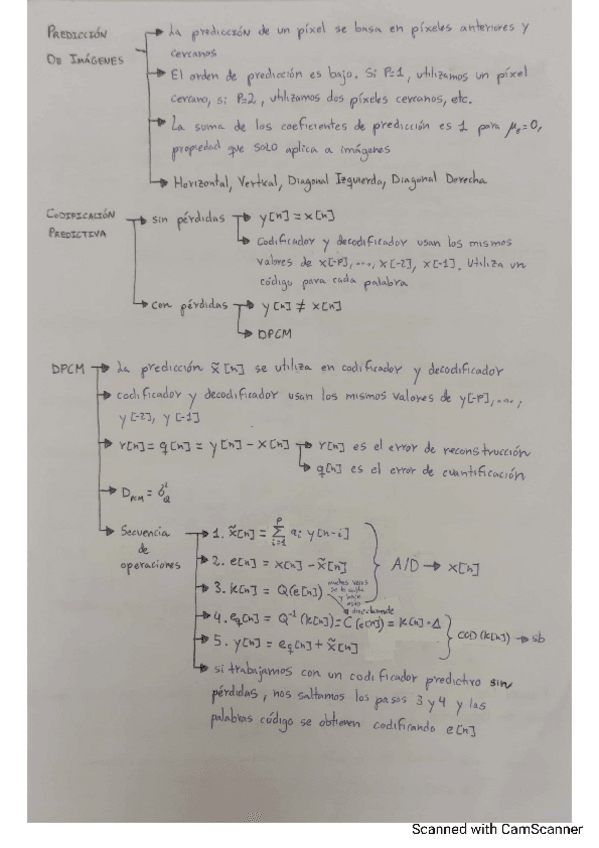 PREDICCIÓN DE IMÁGENES
La predicción de un píxel se basa en píxeles anteriores y
cercanos
El orden de predicción es bajo. Si P=1, utilizamos un píxel
cercano, si P=2, utilizamos dos píxeles cercanos, etc.
La suma de los coeficientes de predicción es 1 para μₑ=0,
propiedad que SOLO aplica a imágenes
Horizontal, Vertical, Diagonal Izquierda, Diagonal Derecha
CODIFICACIÓN PREDICTIVA
sin pérdidas
y[n] = x[n]
Codificador y decodificador usan los mismos
valores de x[-P], ..., x[-2], x[-1]. Utiliza un
código para cada palabra
con pérdidas
y[n] ≠ x[n]
DPCM
DPCM
La predicción x̃[n] se utiliza en codificador y decodificador
codificador y decodificador usan los mismos valores de y[-P], ...,
y[-2], y[-1]
r[n] = q[n] = y[n] - x[n]
r[n] es el error de reconstrucción
q[n] es el error de cuantificación
Secuencia de operaciones
1. x̃[n] = Σ(i=1..P) aᵢ y[n-i]
2. e[n] = x[n] - x̃[n]
3. k[n] = Q(e[n])
muchas veces
A/D → x[n]
4. e_q[n] = Q⁻¹(k[n]) = C(e[n]) = k[n]·Δ
5. y[n] = e_q[n] + x̃[n]
COD(k[n]) → sb
si trabajamos con un codificador predictivo sin
pérdidas, nos saltamos los pasos 3 y 4 y las
palabras código se obtienen codificando e[n]
Scanned with CamScanner